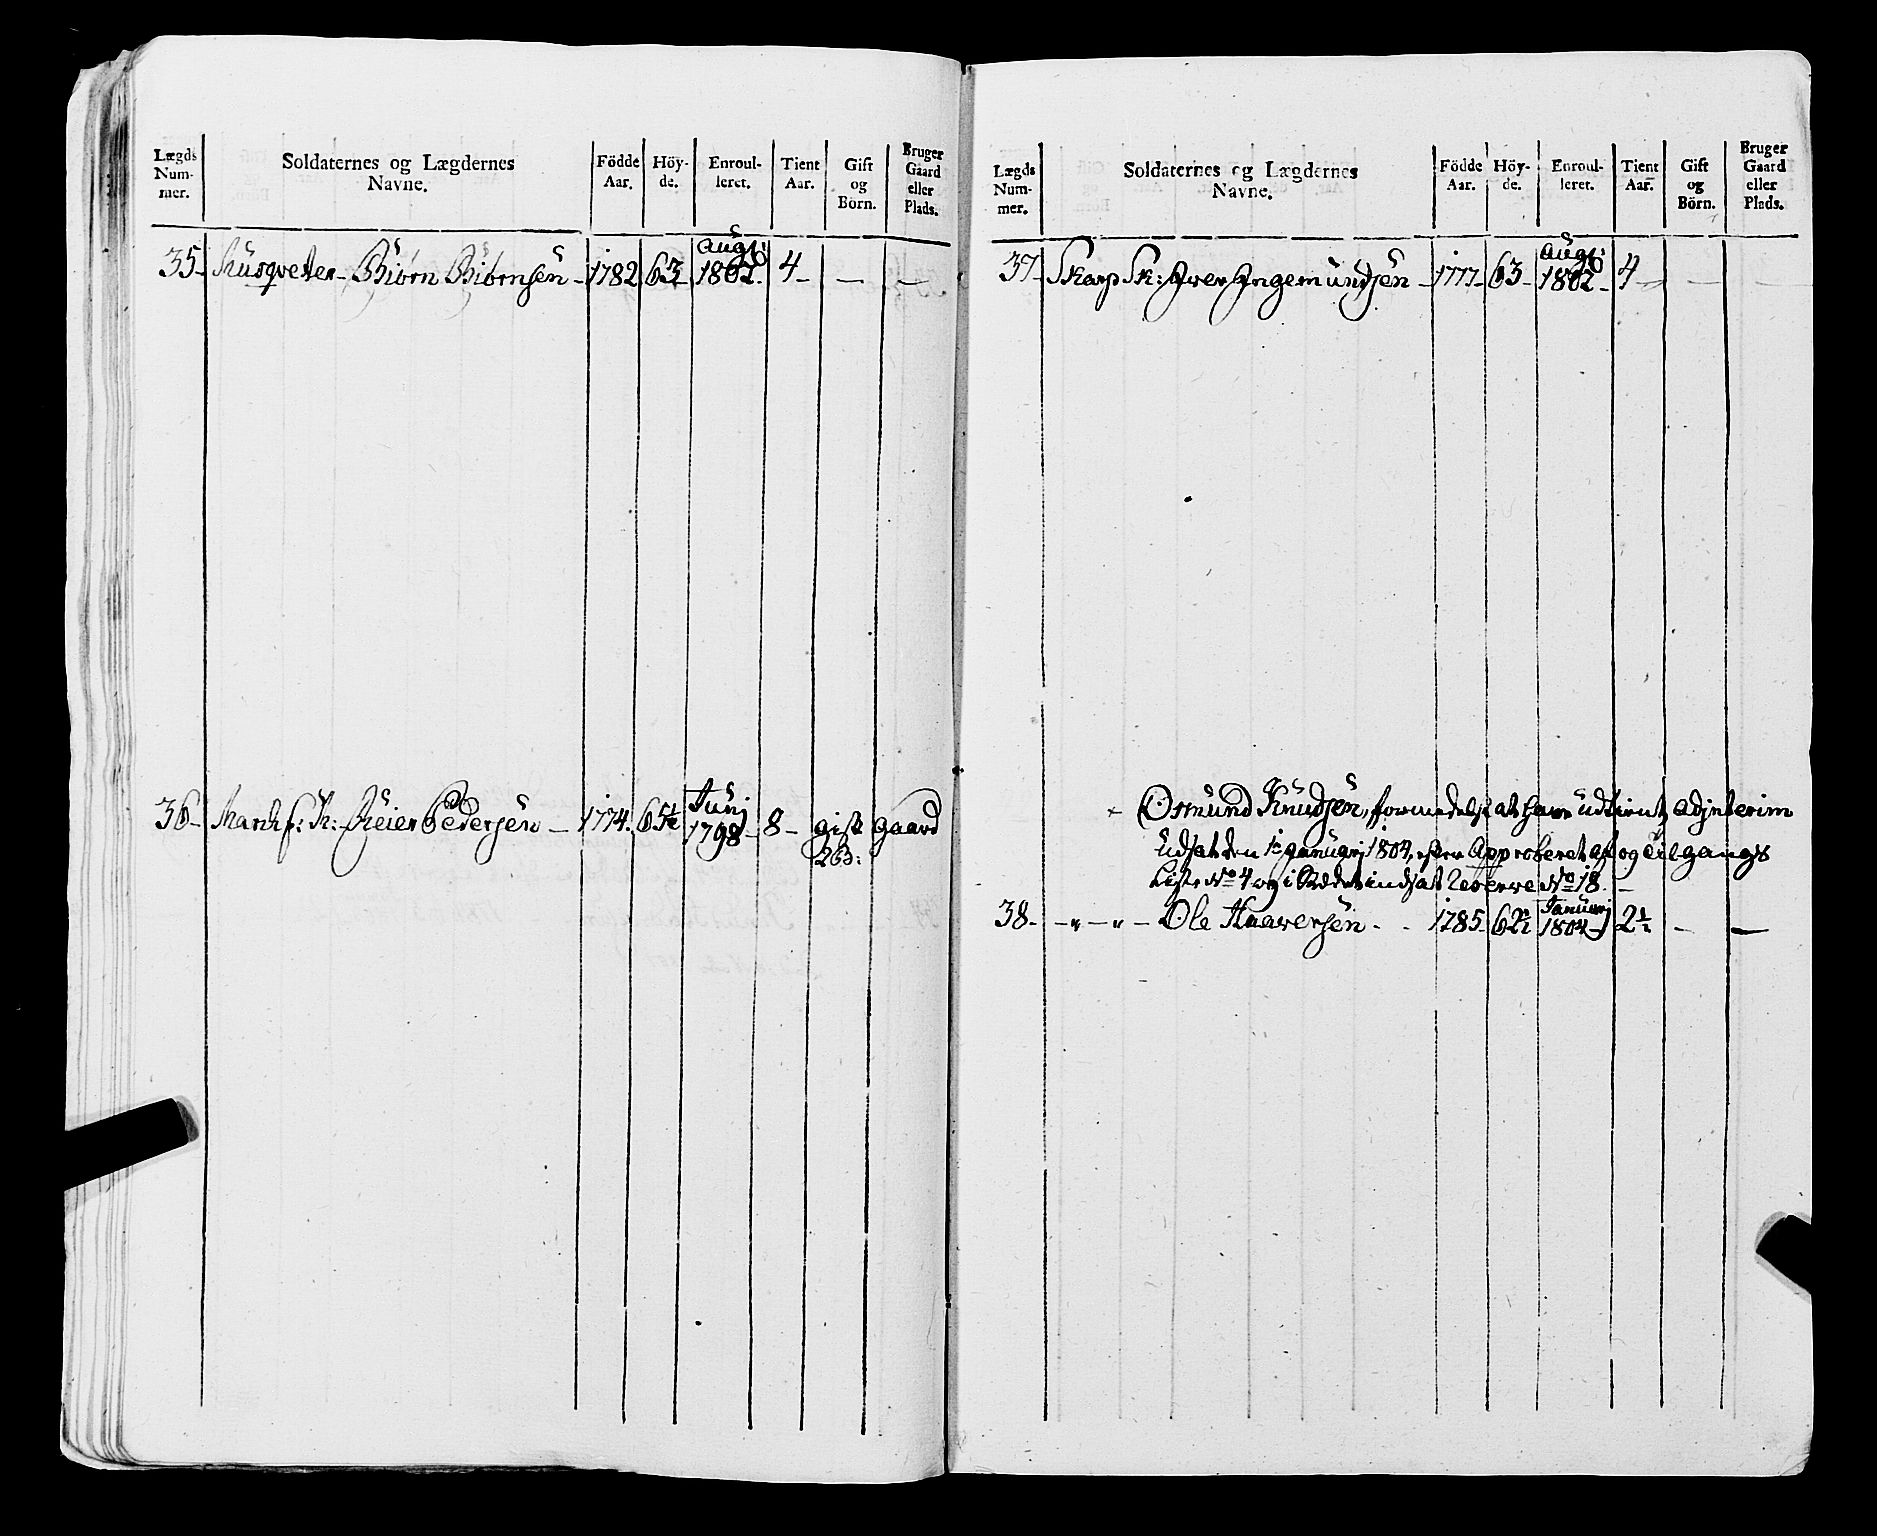 Lægds Num- mer. Soldaternes og Lægdernes Navne. Födde Aar. Höy- de. Enroul- leret. Tient Aar. Gift og Börn. Bruger Gaard eller Plads.
Augt:
35- Musqveter- Biörn Biörnsen - 1782 63 1802. 4 - — —
Junj
36- Reier Pedersen - 1774. 65½ 1798- 8- gift gaard
2 b:
Lægds Num- mer. Soldaternes og Lægdernes Navne. Födde Aar. Höy- de. Enroul- leret. Tient Aar. Gift og Börn. Bruger Gaard eller Plads.
Augt:
37- Skarp Sk: Iver Ingemundsen - 1777- 63- 1802- 4- — —
Osmund Knudsen, formedelst at have udtient, adjnterim
udsat den 1te Januarj 1804, efter Approberet af og tilgangs
Liste No 4 og i Stedet indsat Reserve No 18. —
Januarj
38- -"-"- Ole Haaversen - - 1785 62½ 1804- 2½ — —